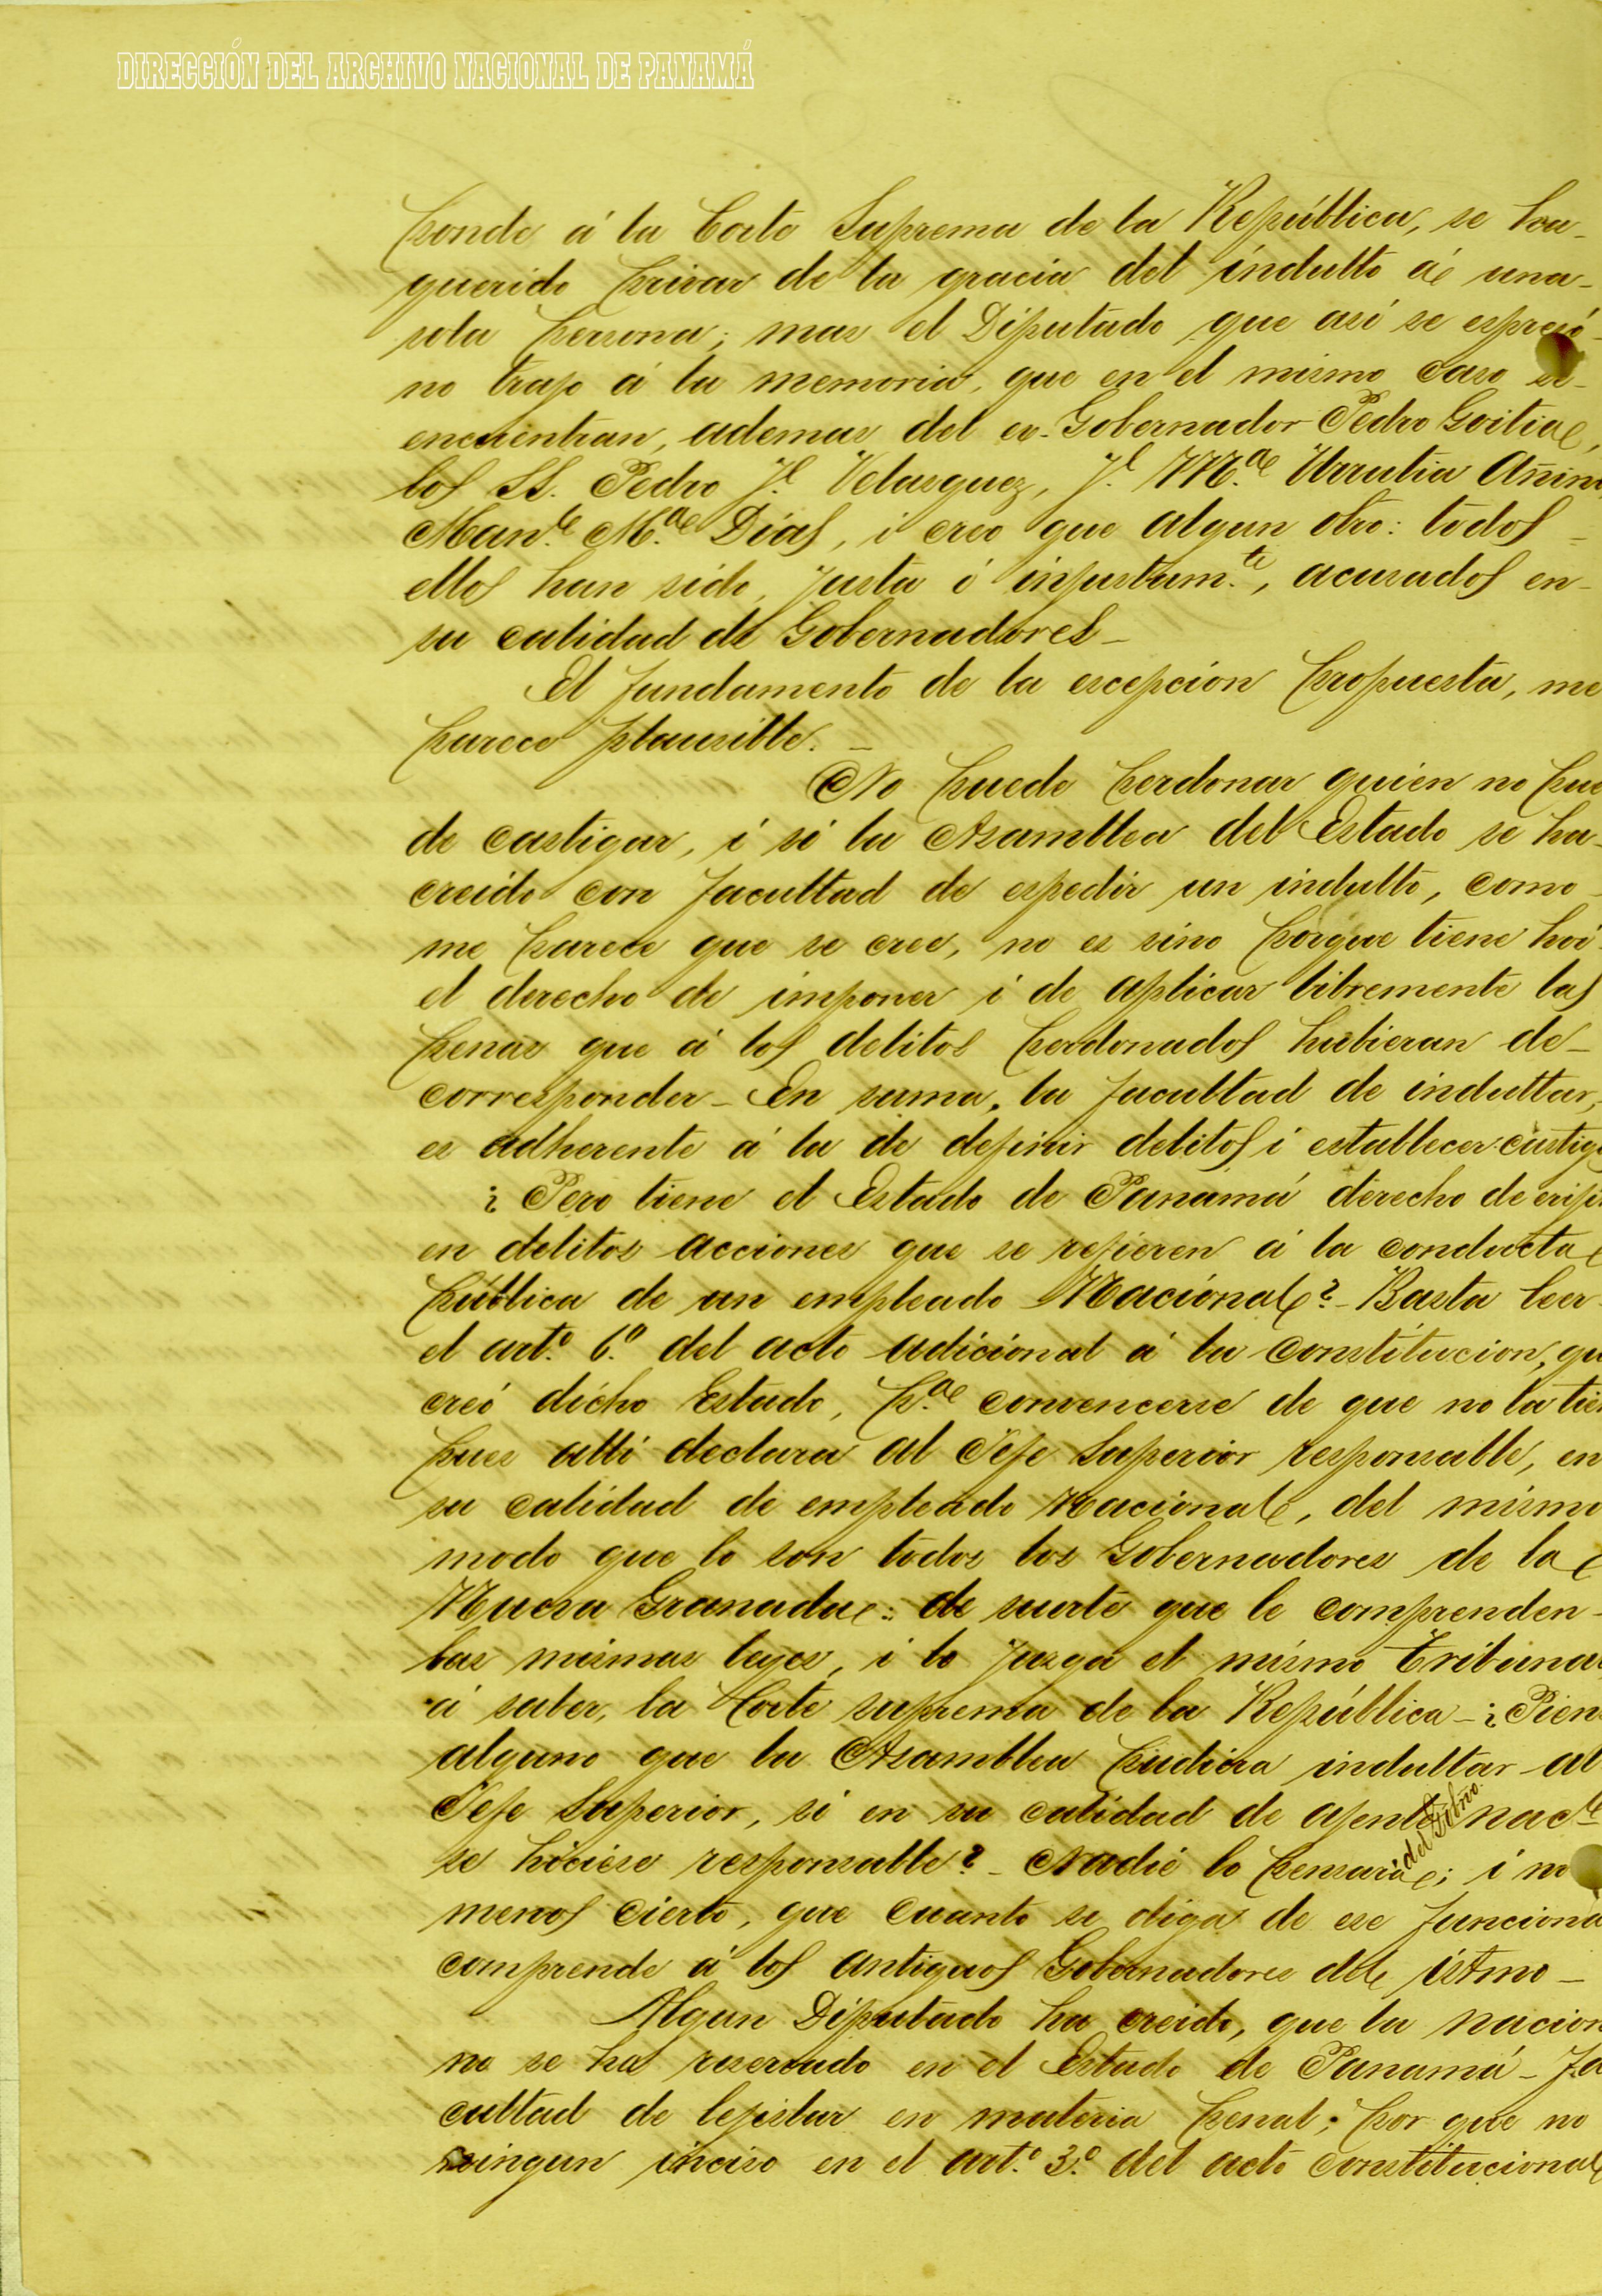 DIRECCIÓN DEL ARCHIVO NACIONAL DE PANAMÁ
ponde á la Corte Suprema de la República, se ha
querido privar de la gracia del indulto á una
sola persona; mas el Diputado que así se espresó
no trajo á la memoria, que en el mismo caso se
encuentran, ademas del ex-Gobernador Pedro Goitia,
los SS. Pedro J.e Velasquez, J.e M.a Urrutia Añino
Man.l M.a Días, i creo que algun otro: todos
ellos han sido, justa ó injustam.te, acusados en
su calidad de Gobernadores_
El fundamento de la escepcion propuesta, me
parece plausible._
No puede perdonar quien no pue
de castigar, i si la Asamblea del Estado se ha
creido con facultad de espedir un indulto, como
me parece que se cree, no es sino porque tiene hoi
el derecho de imponer i de aplicar libremente las
penas que á los delitos perdonados hubieran de
corresponder_ En suma, la facultad de indultar,
es adherente á la de definir delitos i establecer castigo
¿Pero tiene el Estado de Panamá derecho de erijir
en delitos acciones que se refieren á la conducta
pública de un empleado Nacional?_ Basta leer
el art.o 6.o del acto adicional á la Constitucion, qu
creó dicho Estado, p.a convencerse de que no la tien
pues allí declara al Jefe Superior responsable, en
su calidad de empleado Nacional, del mismo
modo que lo son todos los Gobernadores de la
Nueva Granada: de suerte que le comprenden
las mismas leyes, i lo juzga el mismo Tribunal
á saber, la Corte suprema de la República_ ¿Pien
alguno que la Asamblea pudiera indultar al
Jefe Superior, si en su calidad de ajente del Gobno. nacl
se hiciese responsable?_ Nadie lo pensará; i no
menos cierto, que cuanto se diga de ese funciona
comprende á los antiguos Gobernadores del istmo_
Algun Diputado ha creido, que la nacion
no se ha reservado en el Estado de Panamá_ fa
cultad de lejislar en materia penal; por que no
ningun inciso en el art.o 3.o del acto constitucional